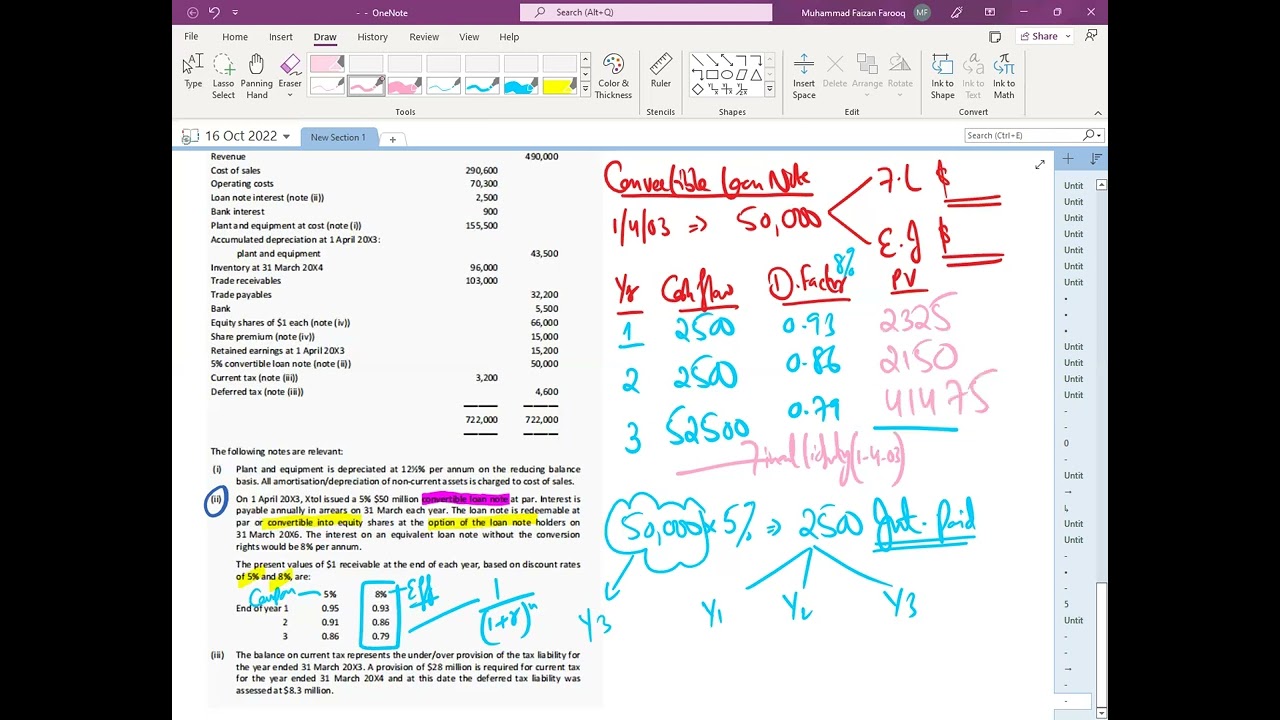 - - OneNote
Search (Alt+Q)
Muhammad Faizan Farooq
MF
File Home Insert Draw History Review View Help
Share
Type
Lasso Select
Panning Hand
Eraser
Color & Thickness
Ruler
Shapes
Insert Space
Delete
Arrange
Rotate
Ink to Shape
Ink to Text
Ink to Math
Tools
Stencils
Edit
Convert
16 Oct 2022
New Section 1
Search (Ctrl+E)
Revenue 490,000
Cost of sales 290,600
Operating costs 70,300
Loan note interest (note (ii)) 2,500
Bank interest 900
Plant and equipment at cost (note (i)) 155,500
Accumulated depreciation at 1 April 20X3:
plant and equipment 43,500
Inventory at 31 March 20X4 96,000
Trade receivables 103,000
Trade payables 32,200
Bank 5,500
Equity shares of $1 each (note (iv)) 66,000
Share premium (note (iv)) 15,000
Retained earnings at 1 April 20X3 15,200
5% convertible loan note (note (ii)) 50,000
Current tax (note (iii)) 3,200
Deferred tax (note (iii)) 4,600
722,000 722,000
The following notes are relevant:
(i) Plant and equipment is depreciated at 12½% per annum on the reducing balance
basis. All amortisation/depreciation of non-current assets is charged to cost of sales.
(ii) On 1 April 20X3, Xtol issued a 5% $50 million convertible loan note at par. Interest is
payable annually in arrears on 31 March each year. The loan note is redeemable at
par or convertible into equity shares at the option of the loan note holders on
31 March 20X6. The interest on an equivalent loan note without the conversion
rights would be 8% per annum.
The present values of $1 receivable at the end of each year, based on discount rates
of 5% and 8%, are:
Coupon 5% 8% Eff
End of year 1 0.95 0.93
2 0.91 0.86
3 0.86 0.79
1
(1+r)^n
(iii) The balance on current tax represents the under/over provision of the tax liability for
the year ended 31 March 20X3. A provision of $28 million is required for current tax
for the year ended 31 March 20X4 and at this date the deferred tax liability was
assessed at $8.3 million.
Convertible Loan Note
F.L $
1/4/03 => 50,000
E.I $
8%
Yr Cash flow D.factor PV
1 2500 0.93 2325
2 2500 0.86 2150
3 52500 0.79 41475
(1-4-03)
50,000 x 5% => 2500 Int. Paid
Y3 Y1 Y2 Y3
Untit
Untit
Untit
Untit
Untit
Untit
•
•
Untit
Untit
•
Untit
Untit
-
0
-
→
Untit
↳
Untit
•
-
5
Untit
-
-
→
-
-